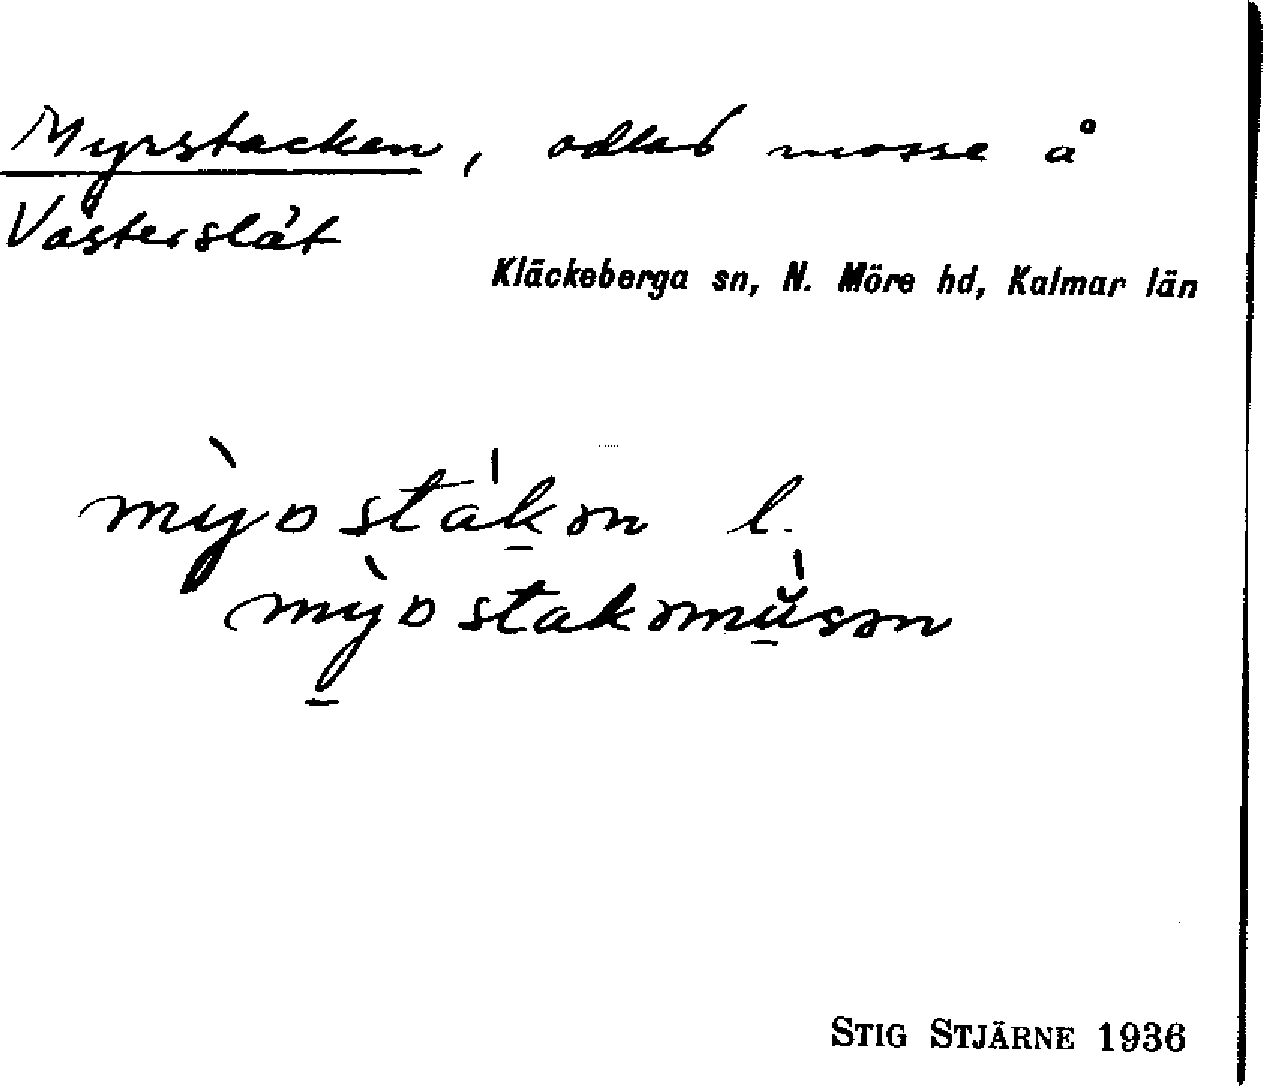 Myrstacken, odlad mosse å
Västerslät
Kläckeberga sn, N. Möre hd, Kalmar län
l.
STIG STJÄRNE 1936